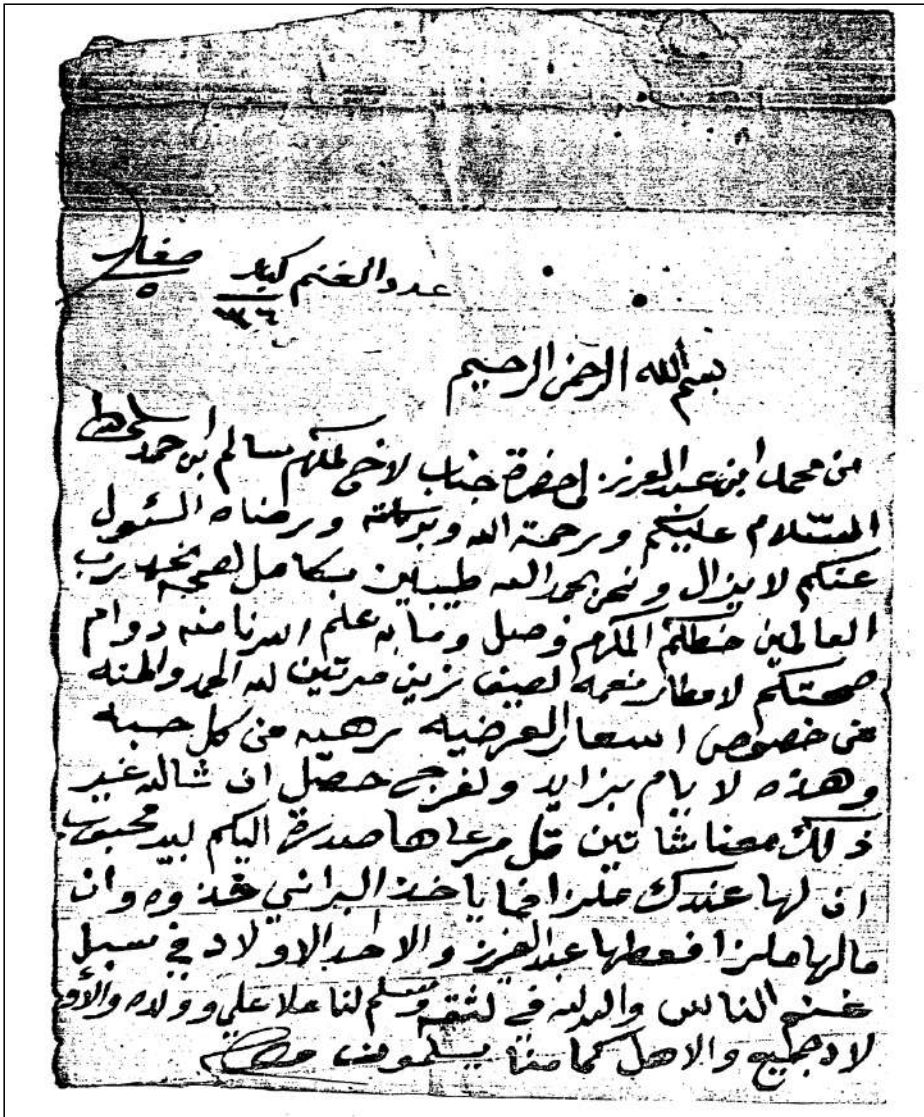 عدد الغنم كبار صغار
٣٦ ٥
بسم الله الرحمن الرحيم
من محمد ابن عبد العزيز لحضرة جناب لاخ لمكرم سالم ابن حمد
السلام عليكم ورحمة الله وبركاته ورضاه السئول
عنكم لا يزال ونحن بحمد الله طيبين بكامل لصحه نحمد رب
العالمين خطكم المكرم وصل وما به علم اسرنا منه دوام
صحتكم لامطار نعمه لصيف زين مرتين لله الحمد والمنه
من خصوص اسعار العرضيه رهيه من كل حبه
وهذه لايام بزايد ولفرجي حصل ان شالله غير
ذلك معنا شاتين قل مرعاها صدرة اليكم ليد محبوب
ان لها عندك ملزا فيا ياخذ البراني خذوه وان
مالها ملزا فعطها عبد العزيز والا احد الاولاد في سبيل
غنم الناس والبدله في لثقه وسلم لنا علا علي وولاده والأو
لاد جميع والاهل كما منا يسلمون